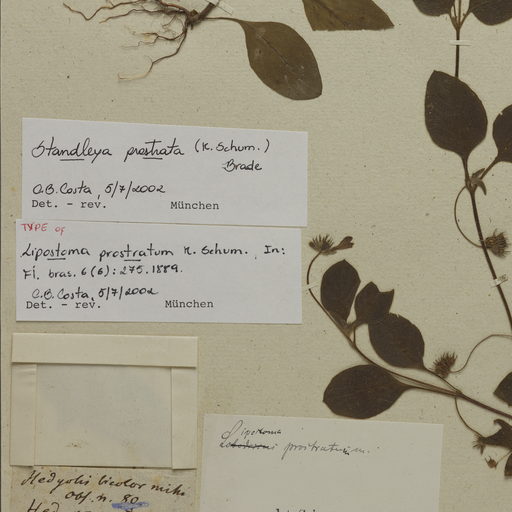 Standleya prostrata (K. Schum.)
Brade
C.B. Costa, 5/7/2002
Det. - rev. München
TYPE of
Lipostoma prostratum K. Schum., In:
Fl. bras. 6(6): 275. 1889.
C.B. Costa, 5/7/2002
Det. - rev. München
Lipostoma
prostratum.
Hedyotis bicolor mihi
Obs. n. 80
Hed